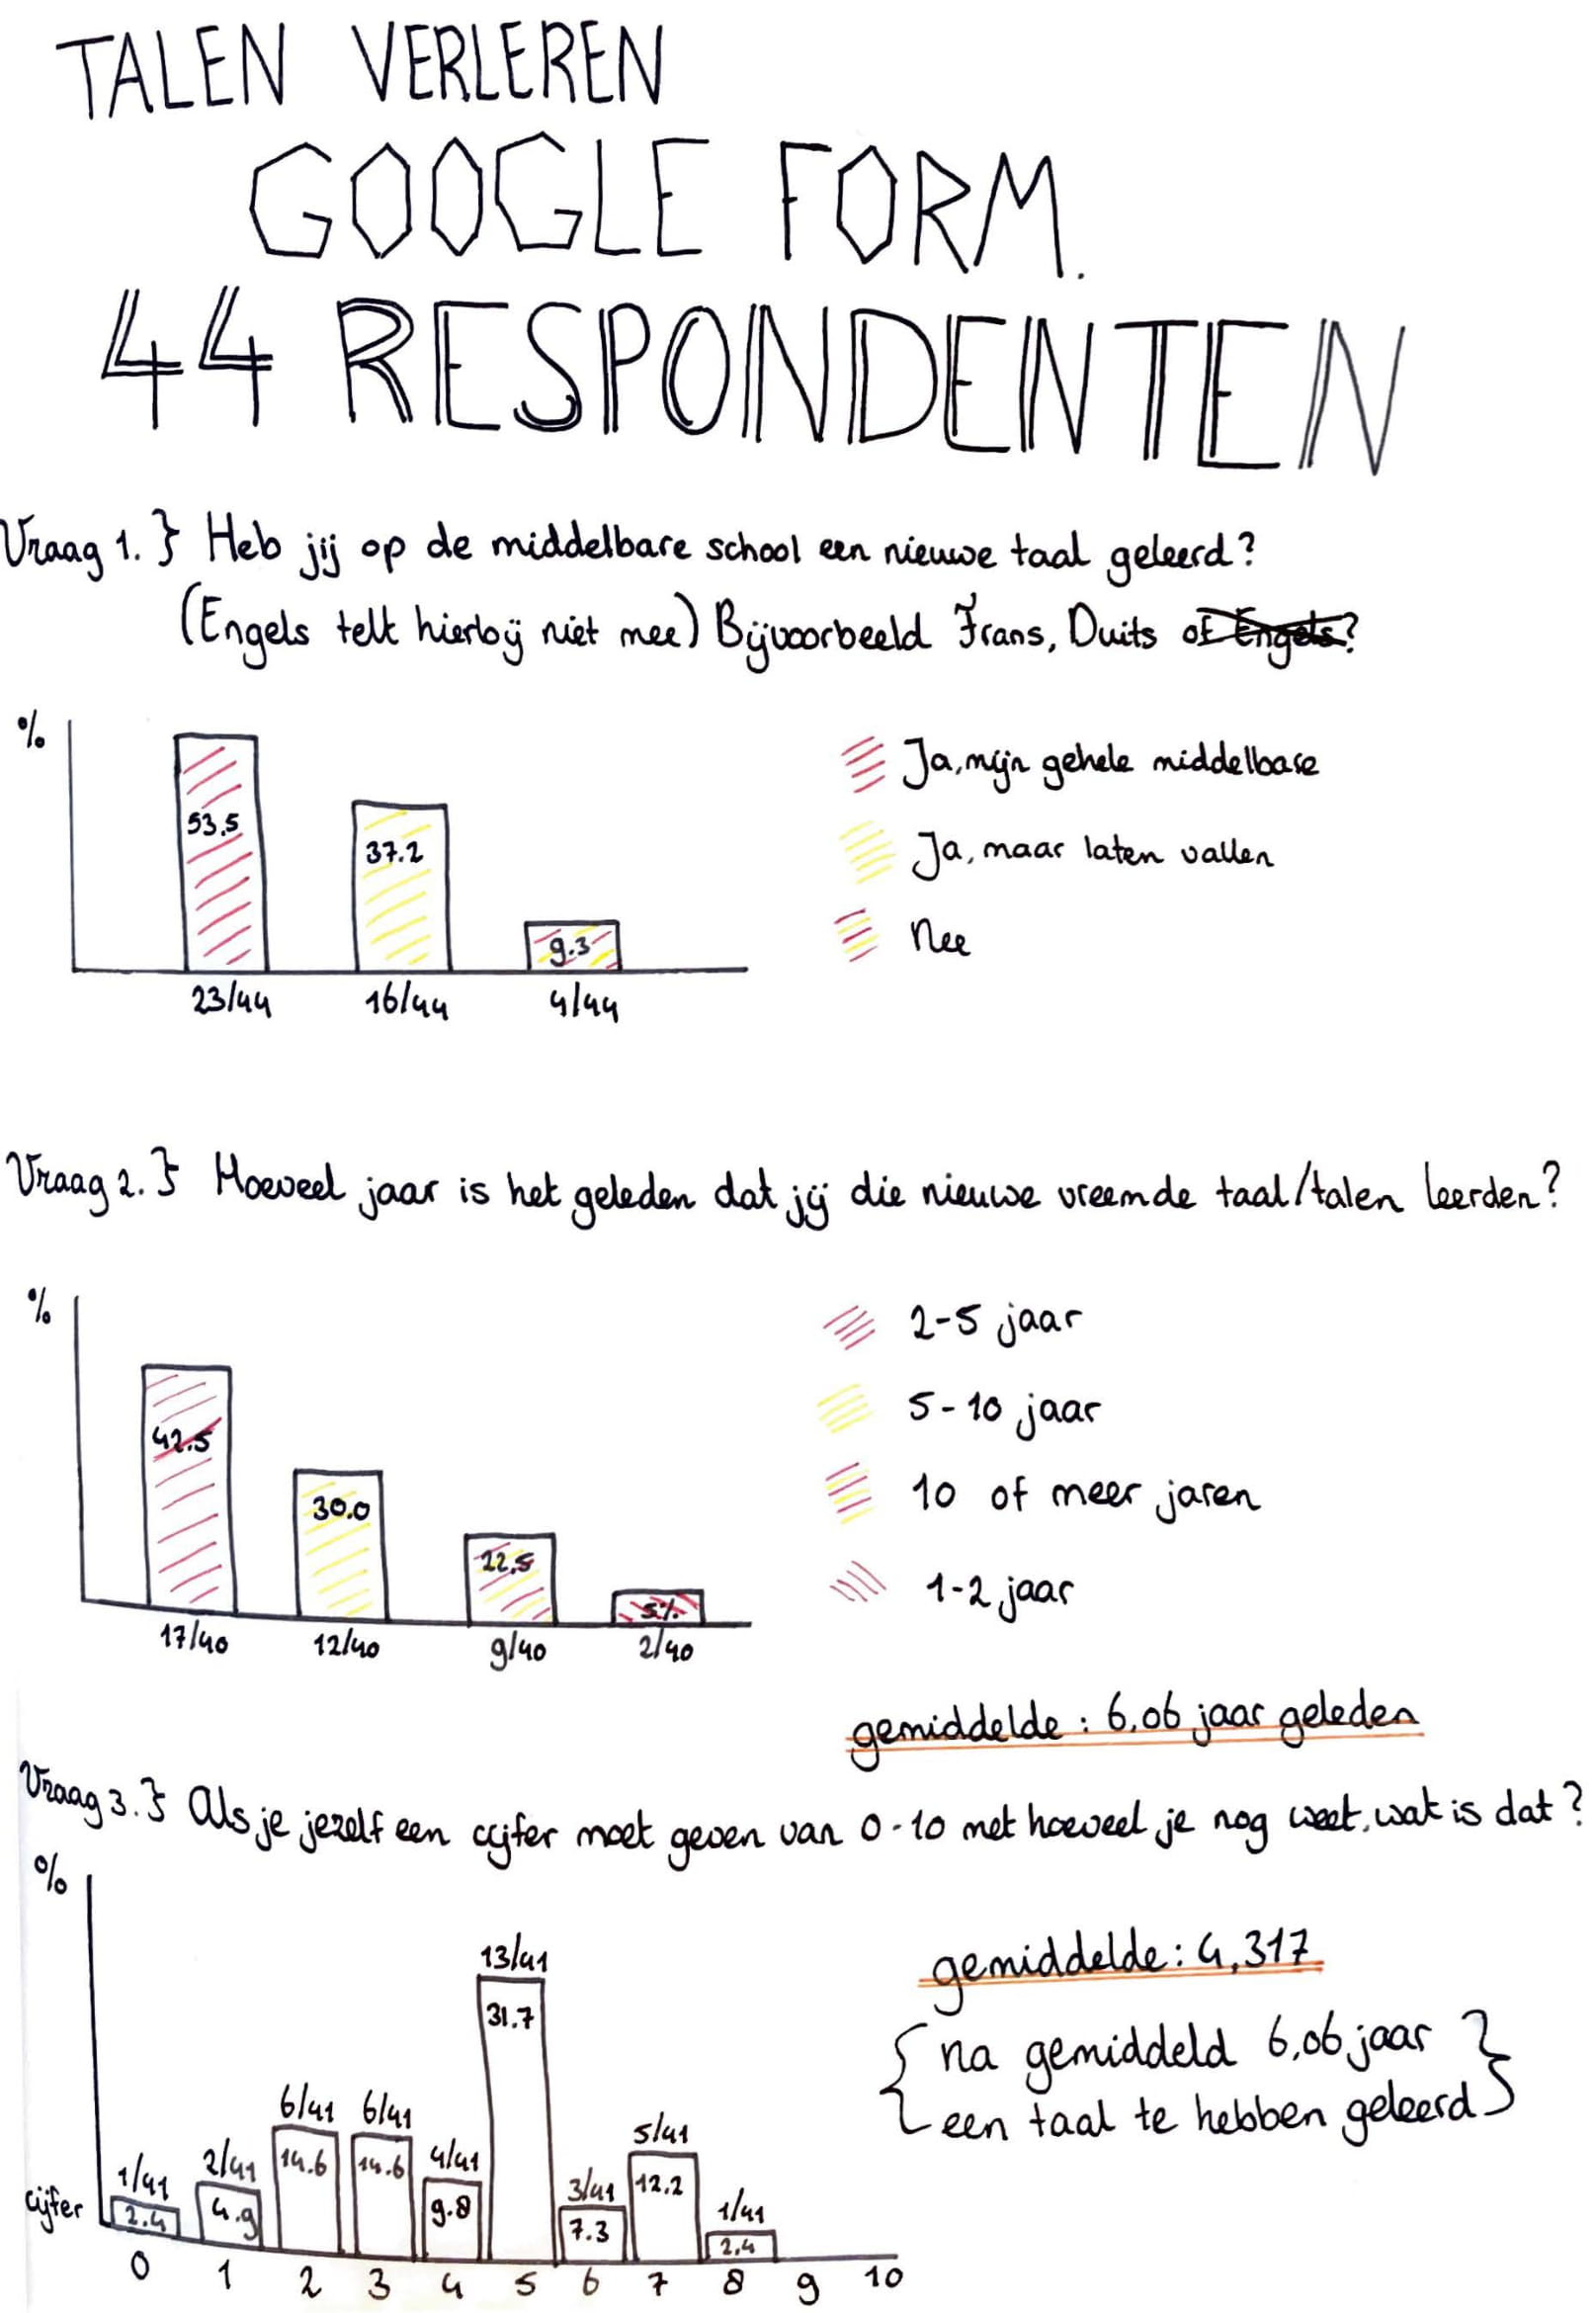 TALEN VERLEREN
GOOGLE FORM.
44 RESPONDENTEN
Vraag 1.} Heb jij op de middelbare school een nieuwe taal geleerd?
(Engels telt hierbij niet mee) Bijvoorbeeld Frans, Duits of Engels?
%
53,5
37.2
9.3
23/44 16/44 4/44
Ja, mijn gehele middelbare
Ja, maar laten vallen
Nee
Vraag 2.} Hoeveel jaar is het geleden dat jij die nieuwe vreemde taal/talen leerden?
%
42.5
30.0
22,5
5%
17/40 12/40 9/40 2/40
2-5 jaar
5-10 jaar
10 of meer jaren
1-2 jaar
gemiddelde: 6,06 jaar geleden
Vraag 3.} Als je jezelf een cijfer moet geven van 0-10 met hoeveel je nog weet, wat is dat?
%
1/41 2/41 6/41 6/41 4/41 13/41 3/41 5/41 1/41
2.4 4.9 14.6 14.6 9.8 31.7 7.3 12.2 2.4
cijfer
0 1 2 3 4 5 6 7 8 9 10
gemiddelde: 4,317
{na gemiddeld 6,06 jaar}
een taal te hebben geleerd